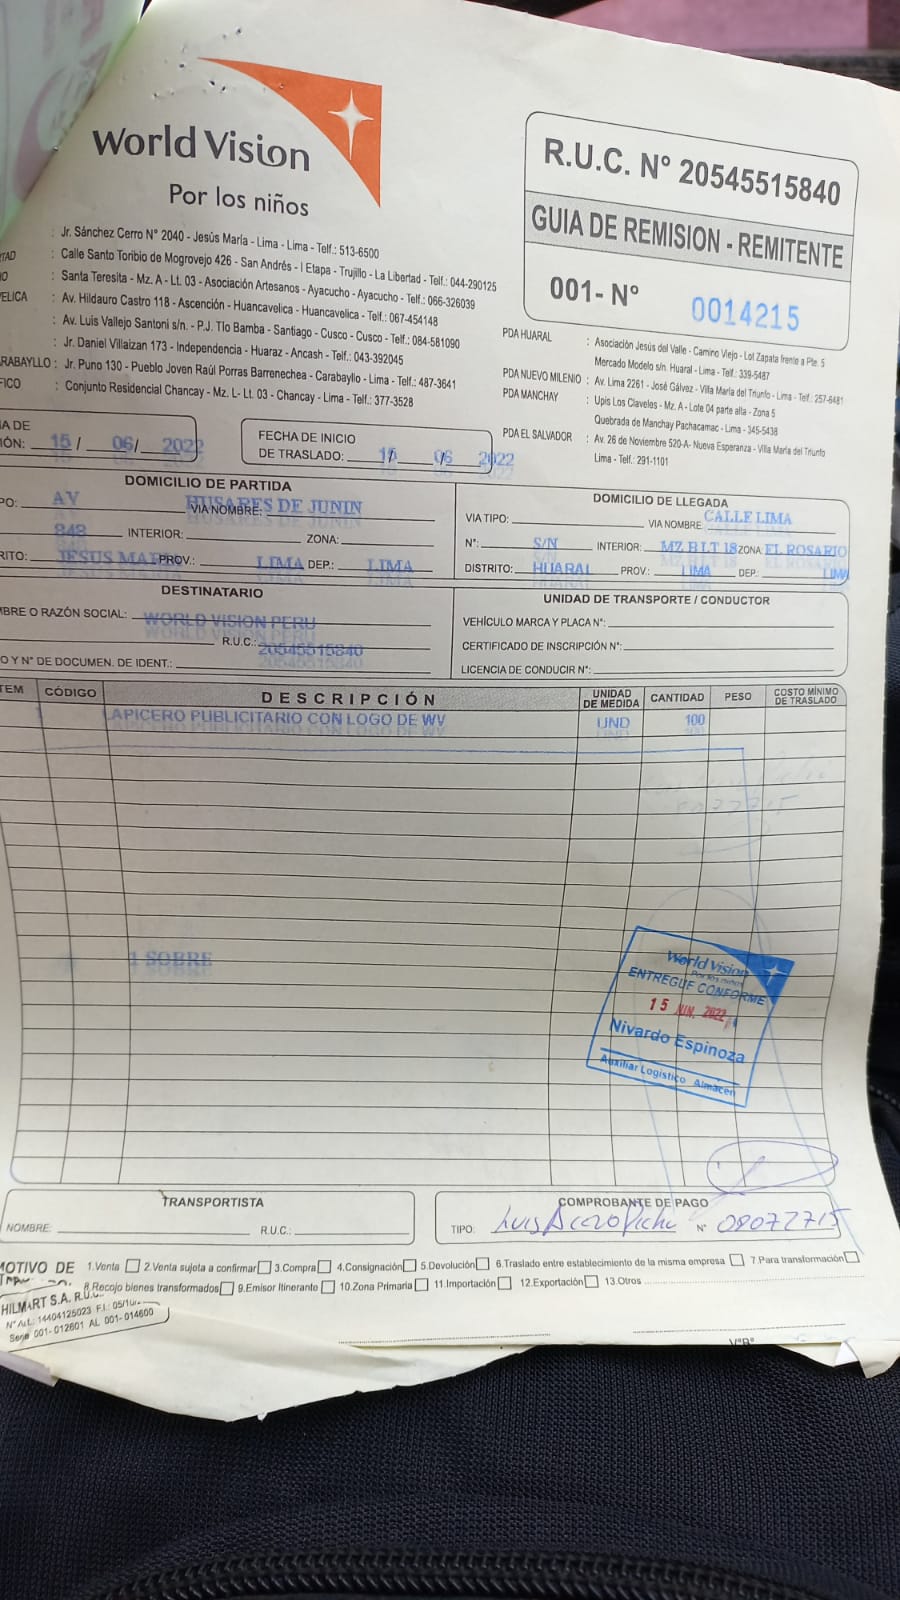 World Vision
Por los niños
R.U.C. N° 20545515840
GUIA DE REMISION - REMITENTE
001- N° 0014215
: Jr. Sánchez Cerro N° 2040 - Jesús María - Lima - Lima - Telf.: 513-6500
: Calle Santo Toribio de Mogrovejo 426 - San Andrés - I Etapa - Trujillo - La Libertad - Telf.: 044-290125
: Santa Teresita - Mz. A - Lt. 03 - Asociación Artesanos - Ayacucho - Ayacucho - Telf.: 066-326039
: Av. Hildauro Castro 118 - Ascención - Huancavelica - Huancavelica - Telf.: 067-454148
: Av. Luis Vallejo Santoni s/n. - P.J. TIo Bamba - Santiago - Cusco - Cusco - Telf.: 084-581090
: Jr. Daniel Villaizan 173 - Independencia - Huaraz - Ancash - Telf.: 043-392045
ARABAYLLO : Jr. Puno 130 - Pueblo Joven Raúl Porras Barrenechea - Carabayllo - Lima - Telf.: 487-3641
: Conjunto Residencial Chancay - Mz. L- Lt. 03 - Chancay - Lima - Telf.: 377-3528
PDA HUARAL : Asociación Jesús del Valle - Camino Viejo - Lot Zapata frente a Pte. 5
Mercado Modelo s/n. Huaral - Lima - Telf.: 339-5487
PDA NUEVO MILENIO : Av. Lima 2261 - José Gálvez - Villa María del Triunfo - Lima - Telf.: 257-6481
PDA MANCHAY : Upis Los Claveles - Mz. A - Lote 04 parte alla - Zona 5
Quebrada de Manchay Pachacamac - Lima - 345-5438
PDA EL SALVADOR : Av. 26 de Noviembre 520-A- Nueva Esperanza - Villa María del Triunfo
Lima - Telf.: 291-1101
A DE
IÓN: 15 / 06/ 2022
FECHA DE INICIO
DE TRASLADO: 15 06 2022
DOMICILIO DE PARTIDA
PO: AV VIA NOMBRE: HUSARES DE JUNIN
848 INTERIOR: ZONA:
RITO: JESUS MARIA PROV.: LIMA DEP.: LIMA
DOMICILIO DE LLEGADA
VIA TIPO: VIA NOMBRE: CALLE LIMA
N°: S/N INTERIOR: MZ B LT 18 ZONA: EL ROSARIO
DISTRITO: HUARAL PROV.: LIMA DEP.: LIMA
DESTINATARIO
MBRE O RAZÓN SOCIAL: WORLD VISION PERU
R.U.C.: 20545515840
O Y N° DE DOCUMEN. DE IDENT.:
UNIDAD DE TRANSPORTE / CONDUCTOR
VEHÍCULO MARCA Y PLACA N°:
CERTIFICADO DE INSCRIPCIÓN N°:
LICENCIA DE CONDUCIR N°:
TEM CÓDIGO DESCRIPCIÓN UNIDAD DE MEDIDA CANTIDAD PESO COSTO MÍNIMO DE TRASLADO
LAPICERO PUBLICITARIO CON LOGO DE WV UND 100
1 SOBRE
World Vision
Por los niños
ENTREGUE CONFORME
15 JUN. 2022
Nivardo Espinoza
Auxiliar Logístico Almacen
TRANSPORTISTA
NOMBRE: R.U.C.:
COMPROBANTE DE PAGO
TIPO: Luis N° 08072715
MOTIVO DE 1.Venta 2.Venta sujeta a confirmar 3.Compra 4.Consignación 5.Devolución 6.Traslado entre establecimiento de la misma empresa 7.Para transformación
8.Recojo bienes transformados 9.Emisor Itinerante 10.Zona Primaria 11.Importación 12.Exportación 13.Otros
HILMART S.A. R.U.C.
N° Aut.: 14404125023 F.I.: 05/10/
Serie 001- 012601 AL 001- 014600
V°B°